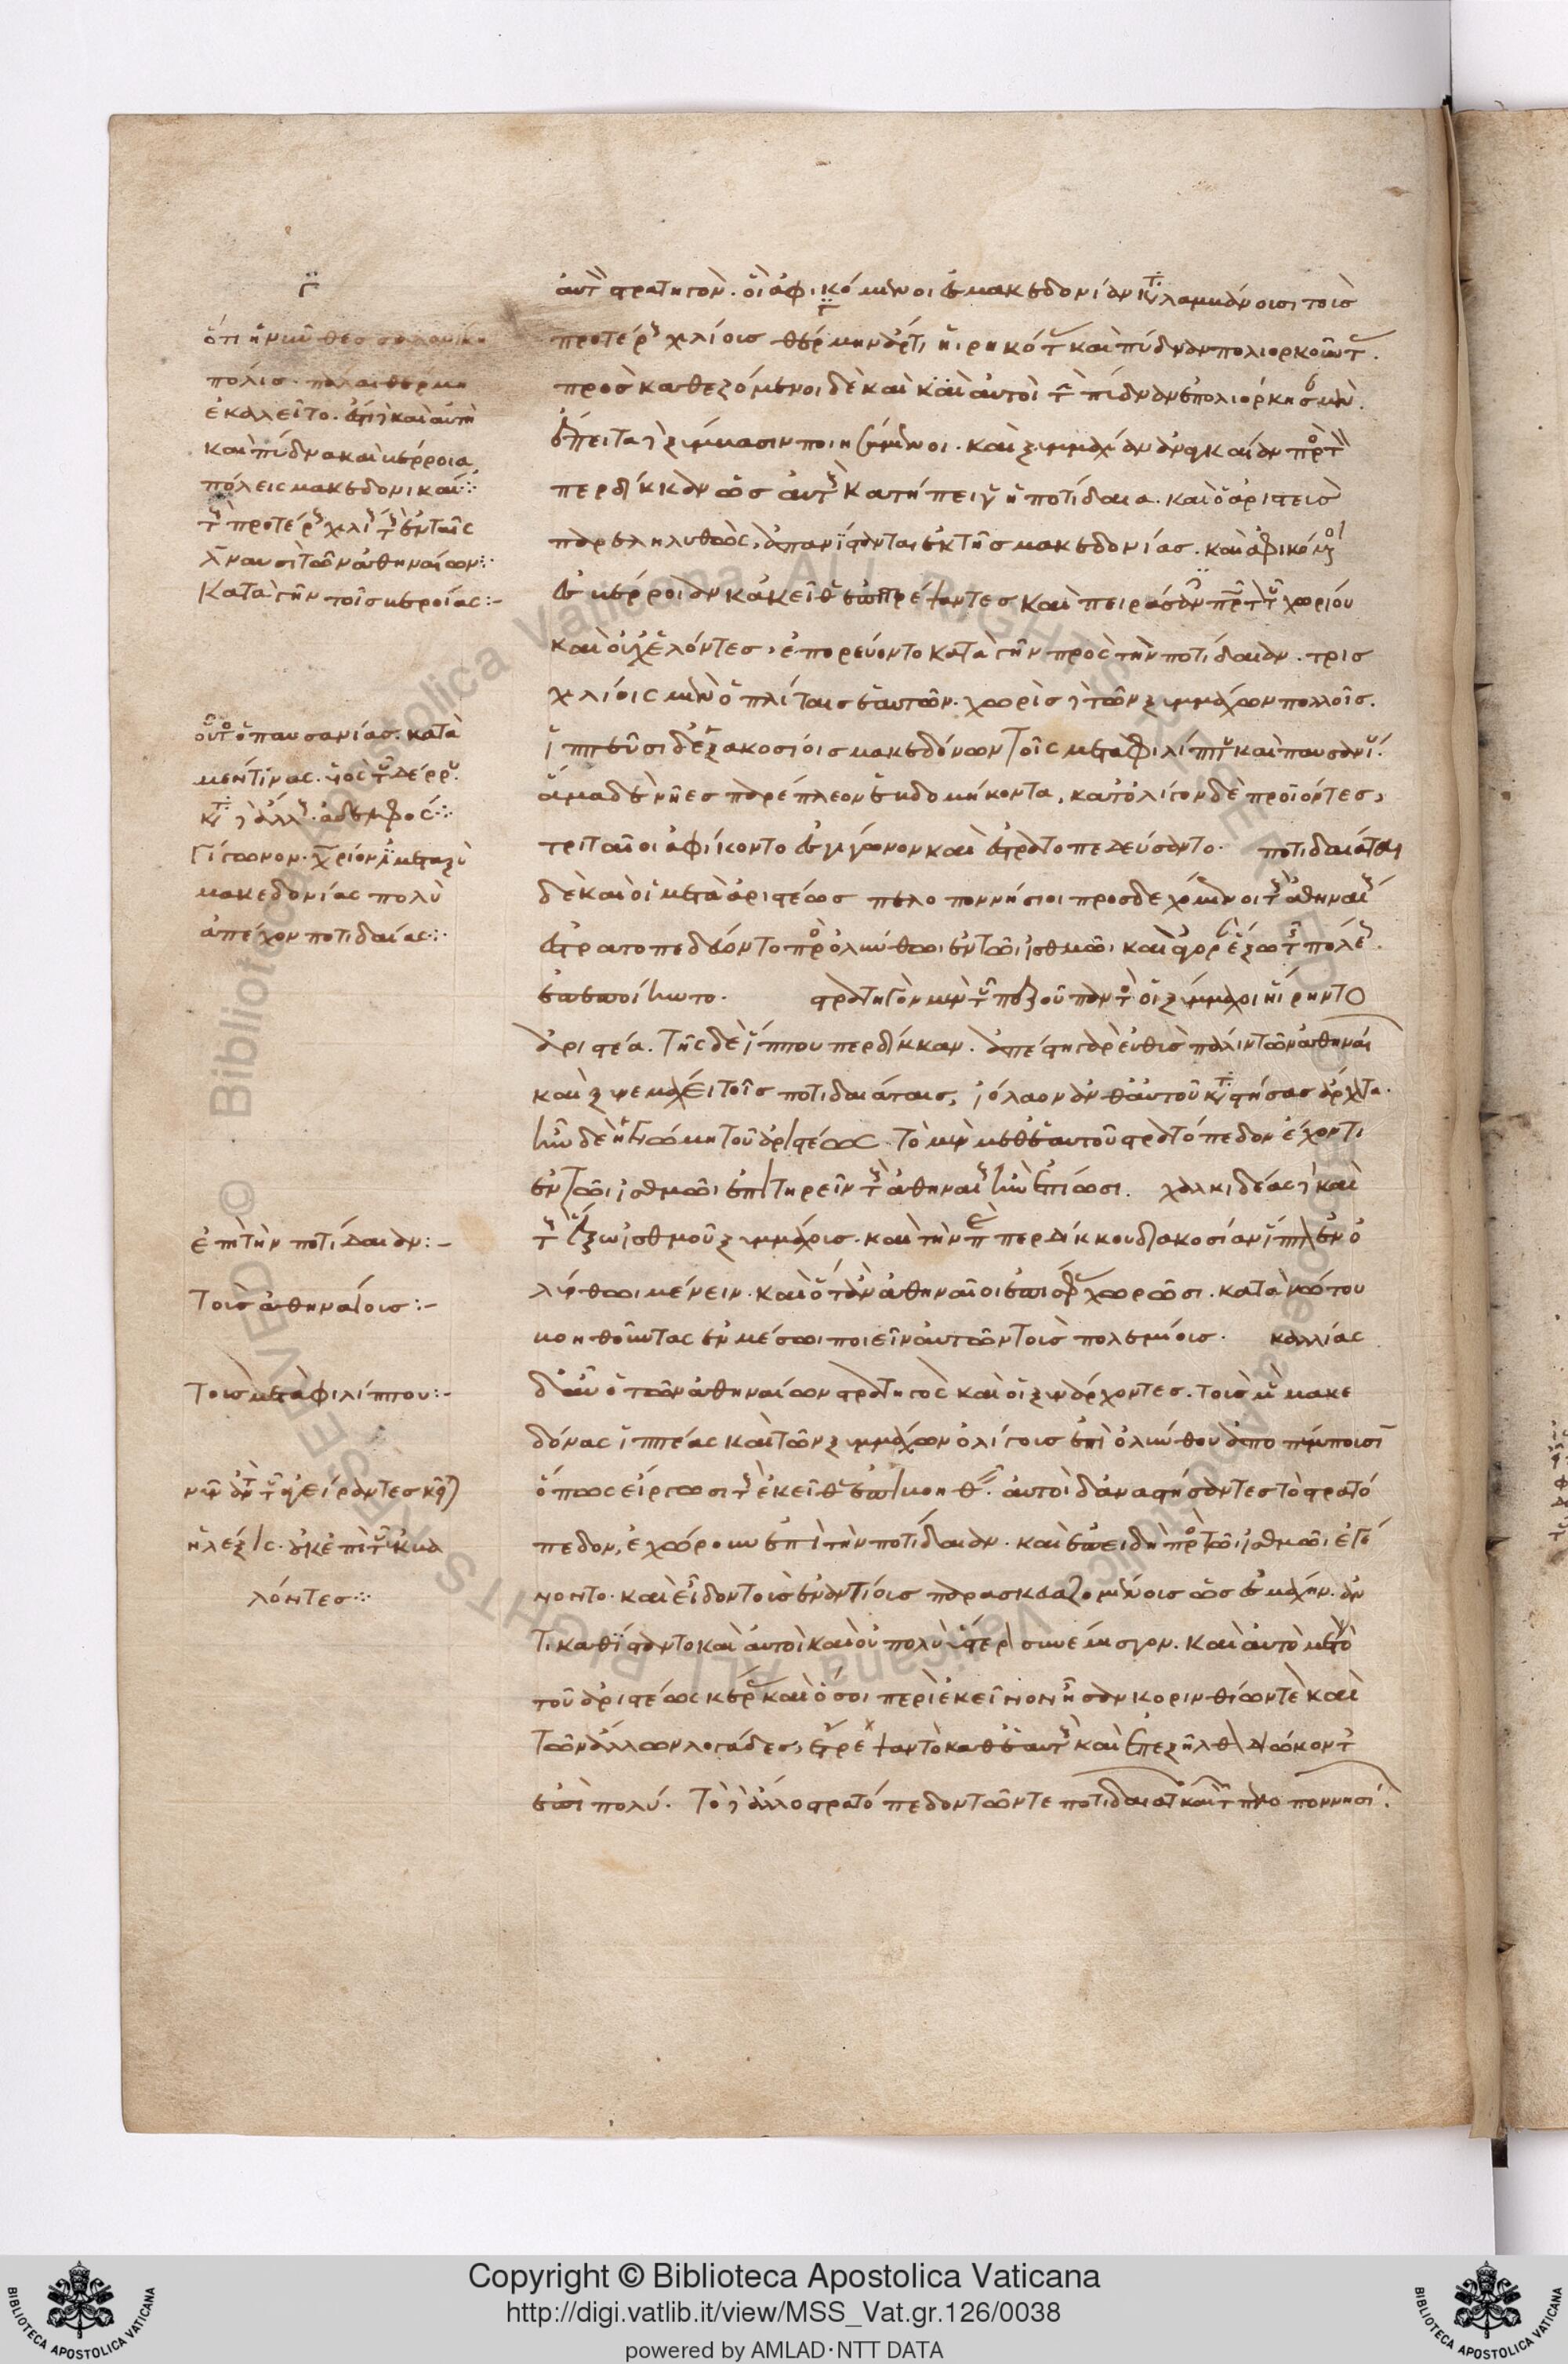 αὐτὸν στρατηγόν. οἳ ἀφικόμενοι ἐς μακεδονίαν καταλαμβάνουσι τοὺς
προτέρους χιλίους θέρμην ἄρτι ᾑρηκότας καὶ πύδναν πολιορκοῦντας.
προσκαθεζόμενοι δὲ καὶ καὶ αὐτοὶ τὴν πύδναν ἐπολιόρκησαν μέν.
ἔπειτα δὲ ξύμβασιν ποιησάμενοι. καὶ ξυμμαχίαν ἀναγκαίαν πρὸς τὸν
περδίκκαν ὡς αὐτοὺς κατήπειγεν ἡ ποτίδαια. καὶ ὁ ἀριστεὺς
παρεληλυθὼς, ἀπανίστανται ἐκ τῆς μακεδονίας. καὶ ἀφικόμενοι
ἐς βέρροιαν κἀκεῖθεν ἐπιστρέψαντες καὶ πειράσαντες πρῶτον τοῦ χωρίου
καὶ οὐχ ἑλόντες, ἐπορεύοντο κατὰ γῆν πρὸς τὴν ποτίδαιαν. τρισ
χιλίοις μὲν ὁπλίταις ἑαυτῶν. χωρὶς δὲ τῶν ξυμμάχων πολλοῖς.
ἱππεῦσι δὲ ἑξακοσίοις μακεδόνων τοῖς μετὰ φιλίππου καὶ παυσανίου.
ἅμα δὲ νῆες παρέπλεον ἑβδομήκοντα, κατ' ὀλίγον δὲ προϊόντες,
τριταῖοι ἀφίκοντο ἐς γίγωνον καὶ ἐστρατοπεδεύσαντο. ποτιδαιᾶται
δὲ καὶ οἱ μετὰ ἀριστέως πελοποννήσιοι προσδεχόμενοι τοὺς ἀθηναίους
ἐστρατοπεδεύοντο πρὸς ὀλύνθωι ἐν τῶι ἰσθμῶι. καὶ ἀγορὰν ἔξω τῆς πόλεως
ἐπεποίηντο. στρατηγὸν μὲν τοῦ πεζοῦ παντὸς οἱ ξύμμαχοι ᾕρηντο
ἀριστέα. τῆς δὲ ἵππου περδίκκαν. ἀπέστη γὰρ εὐθὺς πάλιν τῶν ἀθηναίων
καὶ ξυνεμάχει τοῖς ποτιδαιάταις, ἰόλαον ἀνθ' αὑτοῦ καταστήσας ἄρχοντα.
ἦν δὲ ἡ γνώμη τοῦ ἀριστέως. τὸ μὲν μεθ' ἑαυτοῦ στρατόπεδον ἔχοντι
ἐν τῶι ἰσθμῶι ἐπιτηρεῖν τοὺς ἀθηναίους ἢν ἐπίωσι. χαλκιδέας δὲ καὶ
τοὺς ἔξω ἰσθμοῦ ξυμμάχους. καὶ τὴν παρὰ περδίκκου διακοσίαν ἵππον ἐν ὀ
λύνθωι μένειν. καὶ ὅταν ἀθηναῖοι ἐπὶ σφᾶς χωρῶσι. κατὰ νώτου
βοηθοῦντας ἐν μέσωι ποιεῖν αὐτῶν τοὺς πολεμίους. καλλίας
δ' αὖ ὁ τῶν ἀθηναίων στρατηγὸς καὶ οἱ ξυνάρχοντες. τοὺς μὲν μακε
δόνας ἱππέας καὶ τῶν ξυμμάχων ὀλίγους ἐπὶ ὀλύνθου ἀποπέμπουσιν
ὅπως εἴργωσι τοὺς ἐκεῖθεν ἐπιβοηθεῖν. αὐτοὶ δ' ἀναστήσαντες τὸ στρατό
πεδον, ἐχώρουν ἐπὶ τὴν ποτίδαιαν. καὶ ἐπειδὴ πρὸς τῶι ἰσθμῶι ἐγέ
νοντο. καὶ εἶδον τοὺς ἐναντίους παρασκευαζομένους ὡς ἐς μάχην. ἀν
τικαθίσταντο καὶ αὐτοὶ καὶ οὐ πολὺ ὕστερον συνέμισγον. καὶ αὐτὸ μὲν τὸ
τοῦ ἀριστέως κέρας καὶ ὅσοι περὶ ἐκεῖνον ἦσαν κορινθίων τὲ καὶ
τῶν ἄλλων λογάδες, ἔτρεψαν τὸ καθ' ἑαυτοὺς καὶ ἐπεξῆλθον διώκοντες
ἐπὶ πολύ. τὸ δὲ ἄλλο στρατόπεδον τῶν τε ποτιδαιατῶν καὶ τῶν πελοποννησίων.
γ
ὅτι ἡ νῦν θεσσαλονίκη
πόλις. πάλαι θέρμη
ἐκαλεῖτο. ἔστι δὲ καὶ αὐτὴ
καὶ πύδνα καὶ βέρροια,
πόλεις μακεδονικαί:
τοὺς προτέρους χιλίους τοὺς ἐν ταῖς
λ ναυσὶ τῶν ἀθηναίων:
κατὰ γῆν τοῖς βεροίας:-
οὗτος ὁ παυσανίας. κατὰ
μέν τινας. υἱὸς τοῦ δέρδου.
κατὰ δὲ ἄλλους. ἀδελφός:
γίγωνον. χωρίον μεταξὺ
μακεδονίας πολὺ
ἀπέχον ποτιδαίας:
ἐπὶ τὴν ποτίδαιαν:-
τοὺς ἀθηναίους:-
τοὺς μετὰ φιλίππου:-
λόντες:
Copyright © Biblioteca Apostolica Vaticana
http://digi.vatlib.it/view/MSS_Vat.gr.126/0038
powered by AMLAD·NTT DATA
BIBLIOTECA APOSTOLICA VATICANA
BIBLIOTECA APOSTOLICA VATICANA
Biblioteca Apostolica Vaticana ALL RIGHTS RESERVED ©